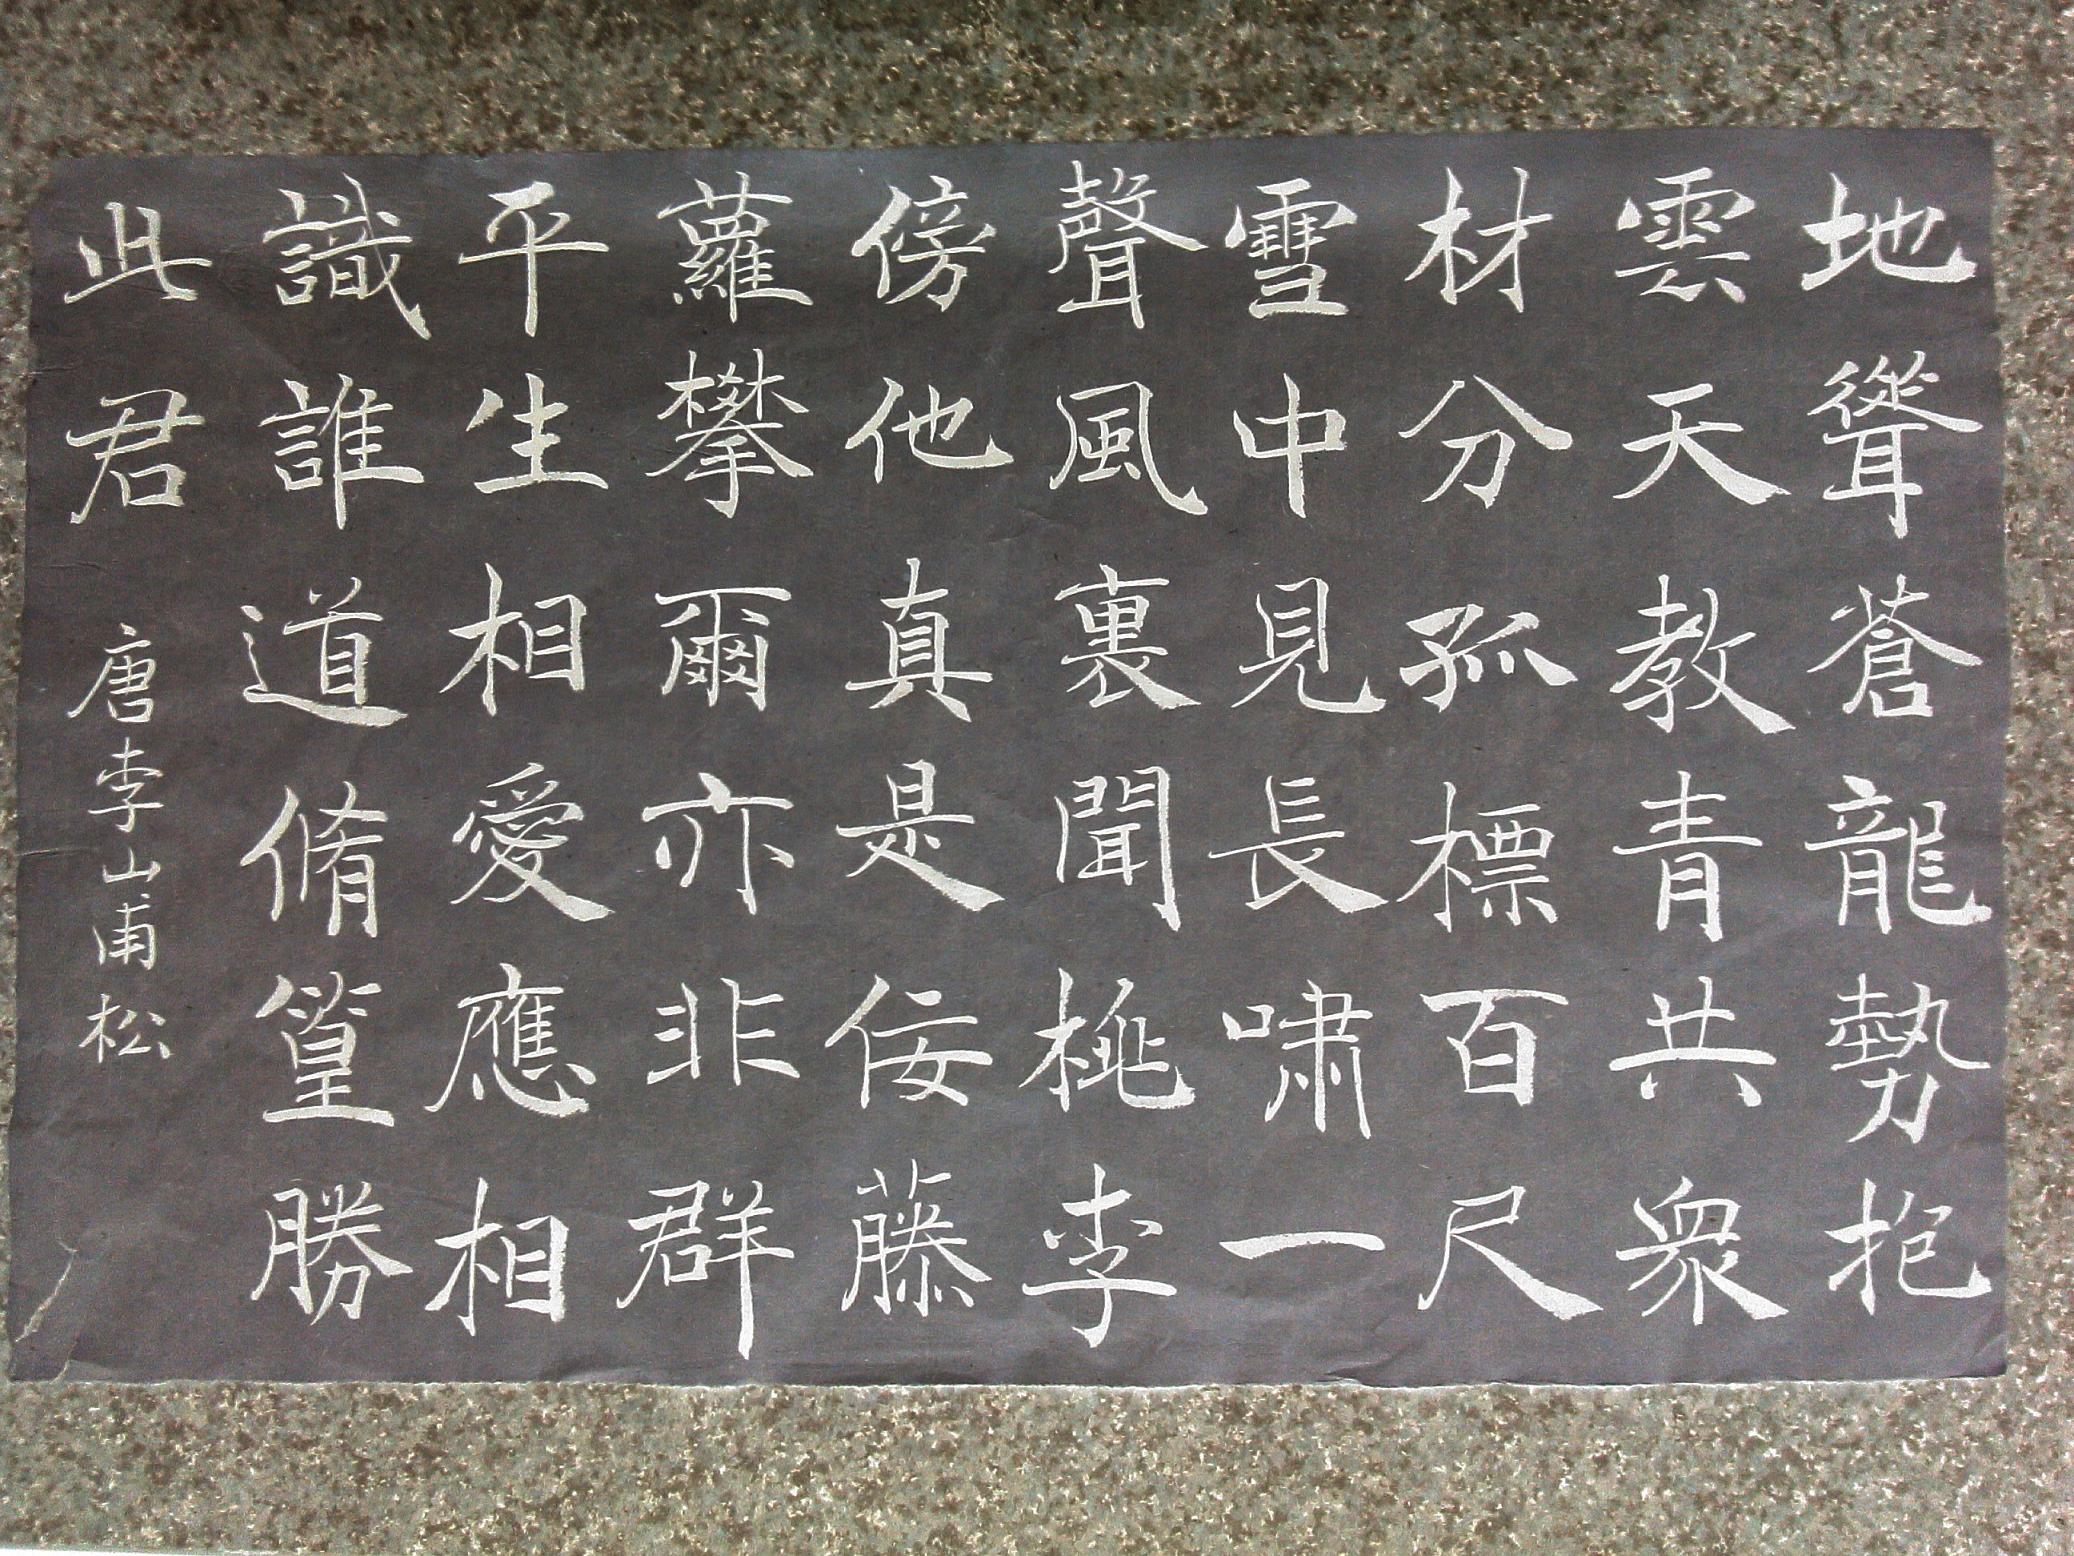 地聳蒼龍勢抱
雲天教青共衆
材分孤標百尺
雪中見長嘯一
聲風裏聞桃李
傍他真是佞藤
蘿攀爾亦非群
平生相愛應相
識誰道脩篁勝
此君
唐李山甫松